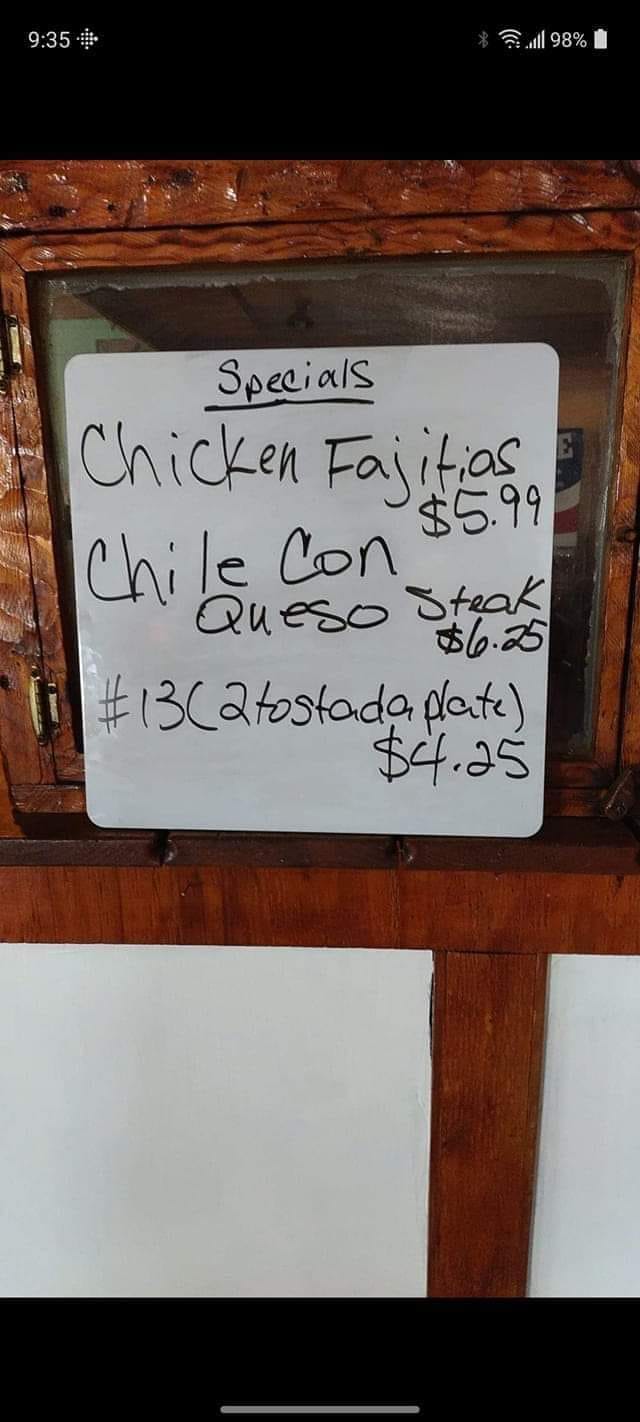 9:35
98%
Specials
Chicken Fajitias
$5.99
Chile Con
Queso Steak
$6.25
#13(2 tostada plate)
$4.25
E